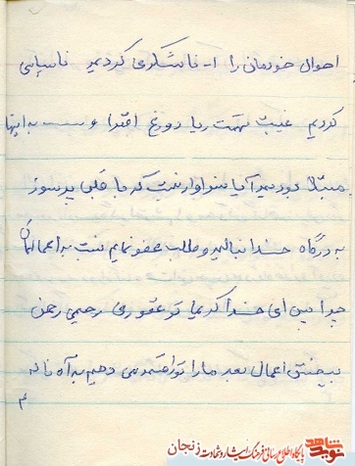 احوال خودمان را ۱- ناشکری کردیم ناسپاسی
کردیم غیبت تهمت ریا دورغ افترا و به اینها
مبتلا بودیم آیا سزاوار نیست که با قلبی پر سوز
به درگاه خدا بنالیم و طلب عفو نمایم نسبت به اعمالمان
چرا نیس ای خدا کریما تو غفوری رحیمی رحمن
ببخش اعمال بعد ما را تو قسمت می دهیم به آه ناله
م
نوید شاهد
پایگاه اطلاع رسانی فرهنگ ایثار و شهادت زنجان